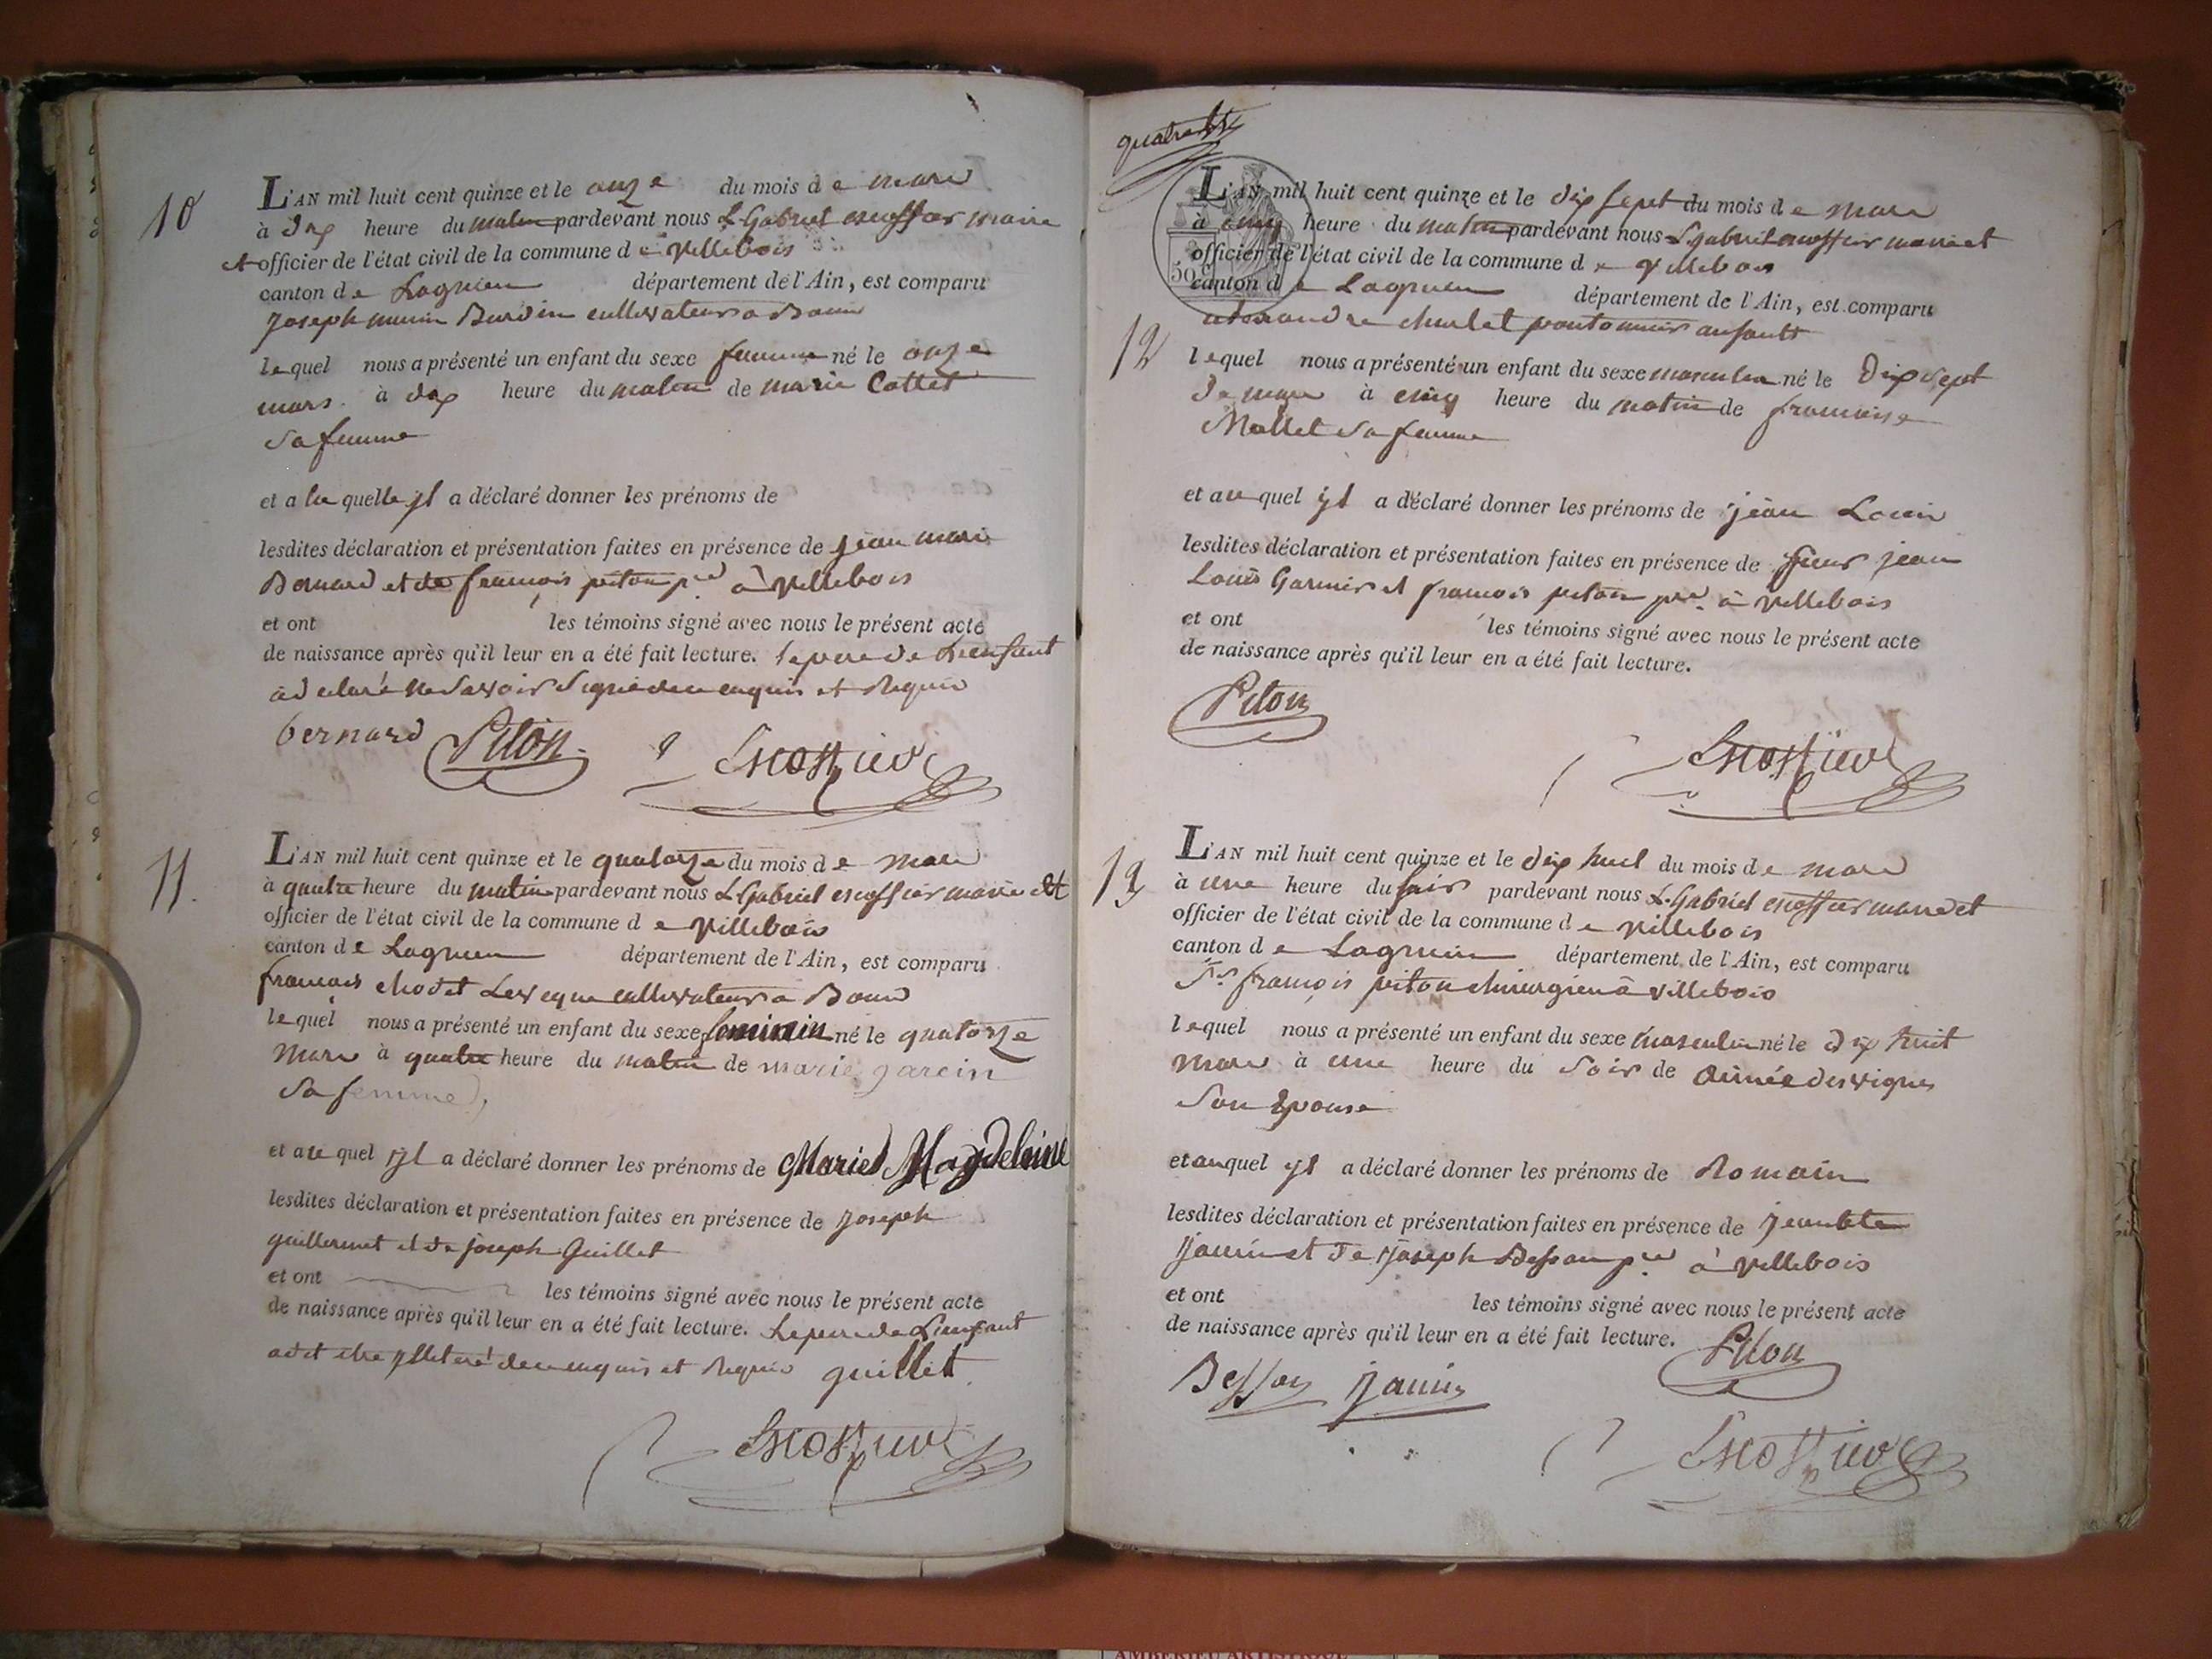 10
L'AN mil huit cent quinze et le onze du mois de mars
à dix heure du matin pardevant nous L. Gabriel escoffier maire
et officier de l'état civil de la commune de Villebois
canton de Lagnieu département de l'Ain, est comparu
Joseph marin Burdin cultivateur a Bouis
lequel nous a présenté un enfant du sexe femme né le onze
mars à dix heure du matin de marie Cottet
sa femme
et a la quelle yl a déclaré donner les prénoms de
lesdites déclaration et présentation faites en présence de jean marie
Bernard et de françois piton pre à Villebois
et ont les témoins signé avec nous le présent acte
de naissance après qu'il leur en a été fait lecture. le pere de L'enfant
a declaré ne savoir signé de ce enquis et Requis
bernard Piton Escoffier
11.
L'AN mil huit cent quinze et le quatorze du mois de mars
à quatre heure du matin pardevant nous L. Gabriel escoffier maire et
officier de l'état civil de la commune de Villebois
canton de Lagnieu département de l'Ain, est comparu
françois chodet Leveque cultivateur a Bouis
lequel nous a présenté un enfant du sexe feminin né le quatorze
mars à quatre heure du matin de marie garcin
sa femme
et au quel yl a déclaré donner les prénoms de Marie Magdeleine
lesdites déclaration et présentation faites en présence de joseph
guillermet et de joseph Guillet
et ont les témoins signé avec nous le présent acte
de naissance après qu'il leur en a été fait lecture. Le pere de L'enfant
a dit etreylleteré de ce enquis et Requis guillet
Escoffier
quatre
50 C
12
L'AN mil huit cent quinze et le dix sept du mois de mars
à cinq heure du matin pardevant nous L. gabriel escoffier maire et
officier de l'état civil de la commune de Villebois
canton de Lagnieu département de l'Ain, est comparu
alexandre charlet pontonnier au sault
lequel nous a présenté un enfant du sexe masculin né le dix sept
de mars à cinq heure du matin de françoise
Mallet sa femme
et au quel yl a déclaré donner les prénoms de jean Louis
lesdites déclaration et présentation faites en présence de sieur jean
Louis Garnier et françois piton pre à Villebois
et ont les témoins signé avec nous le présent acte
de naissance après qu'il leur en a été fait lecture.
Piton
Escoffier
13
L'AN mil huit cent quinze et le dix huit du mois de mars
à une heure du soir pardevant nous L. Gabriel escoffier maire et
officier de l'état civil de la commune de Villebois
canton de Lagnieu département de l'Ain, est comparu
Sr françois piton chirurgien à Villebois
lequel nous a présenté un enfant du sexe masculin né le dix huit
mars à une heure du soir de aimée desvignes
son Epouse
et auquel yl a déclaré donner les prénoms de Romain
lesdites déclaration et présentation faites en présence de jean bte
janin et de joseph Besson pre à Villebois
et ont les témoins signé avec nous le présent acte
de naissance après qu'il leur en a été fait lecture. Piton
Besson janin
Escoffier